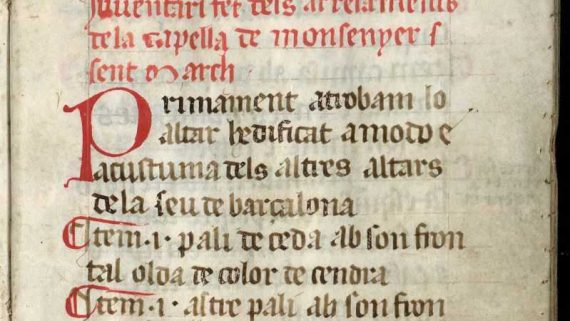 Inventari fet dels arreaments
de la capella de monsenyer s
sent March
Primament atrobam lo
altar hedificat a modo e
acustuma dels altres altars
de la seu de barçalona
Item ·i· pali de ceda ab son fron
tal olda de color de cendra
Item ·i· altre pali ab son fron